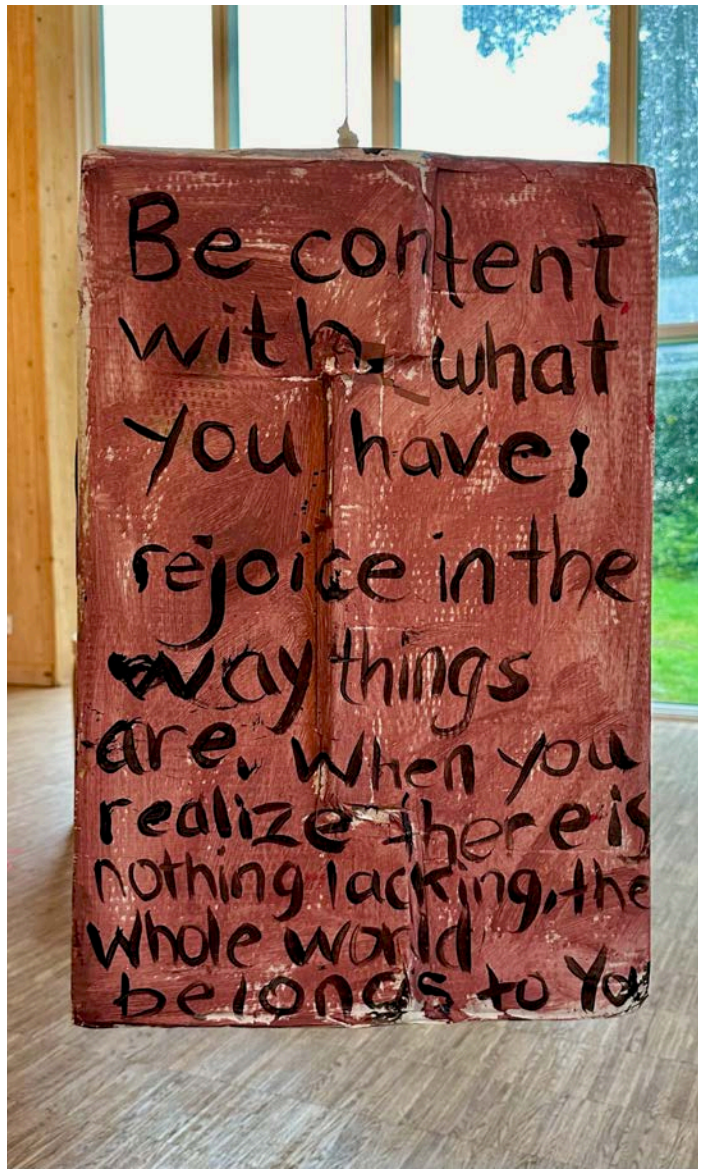 Be content
with what
you have;
rejoice in the
way things
are. When you
realize there is
nothing lacking, the
whole world
belongs to You